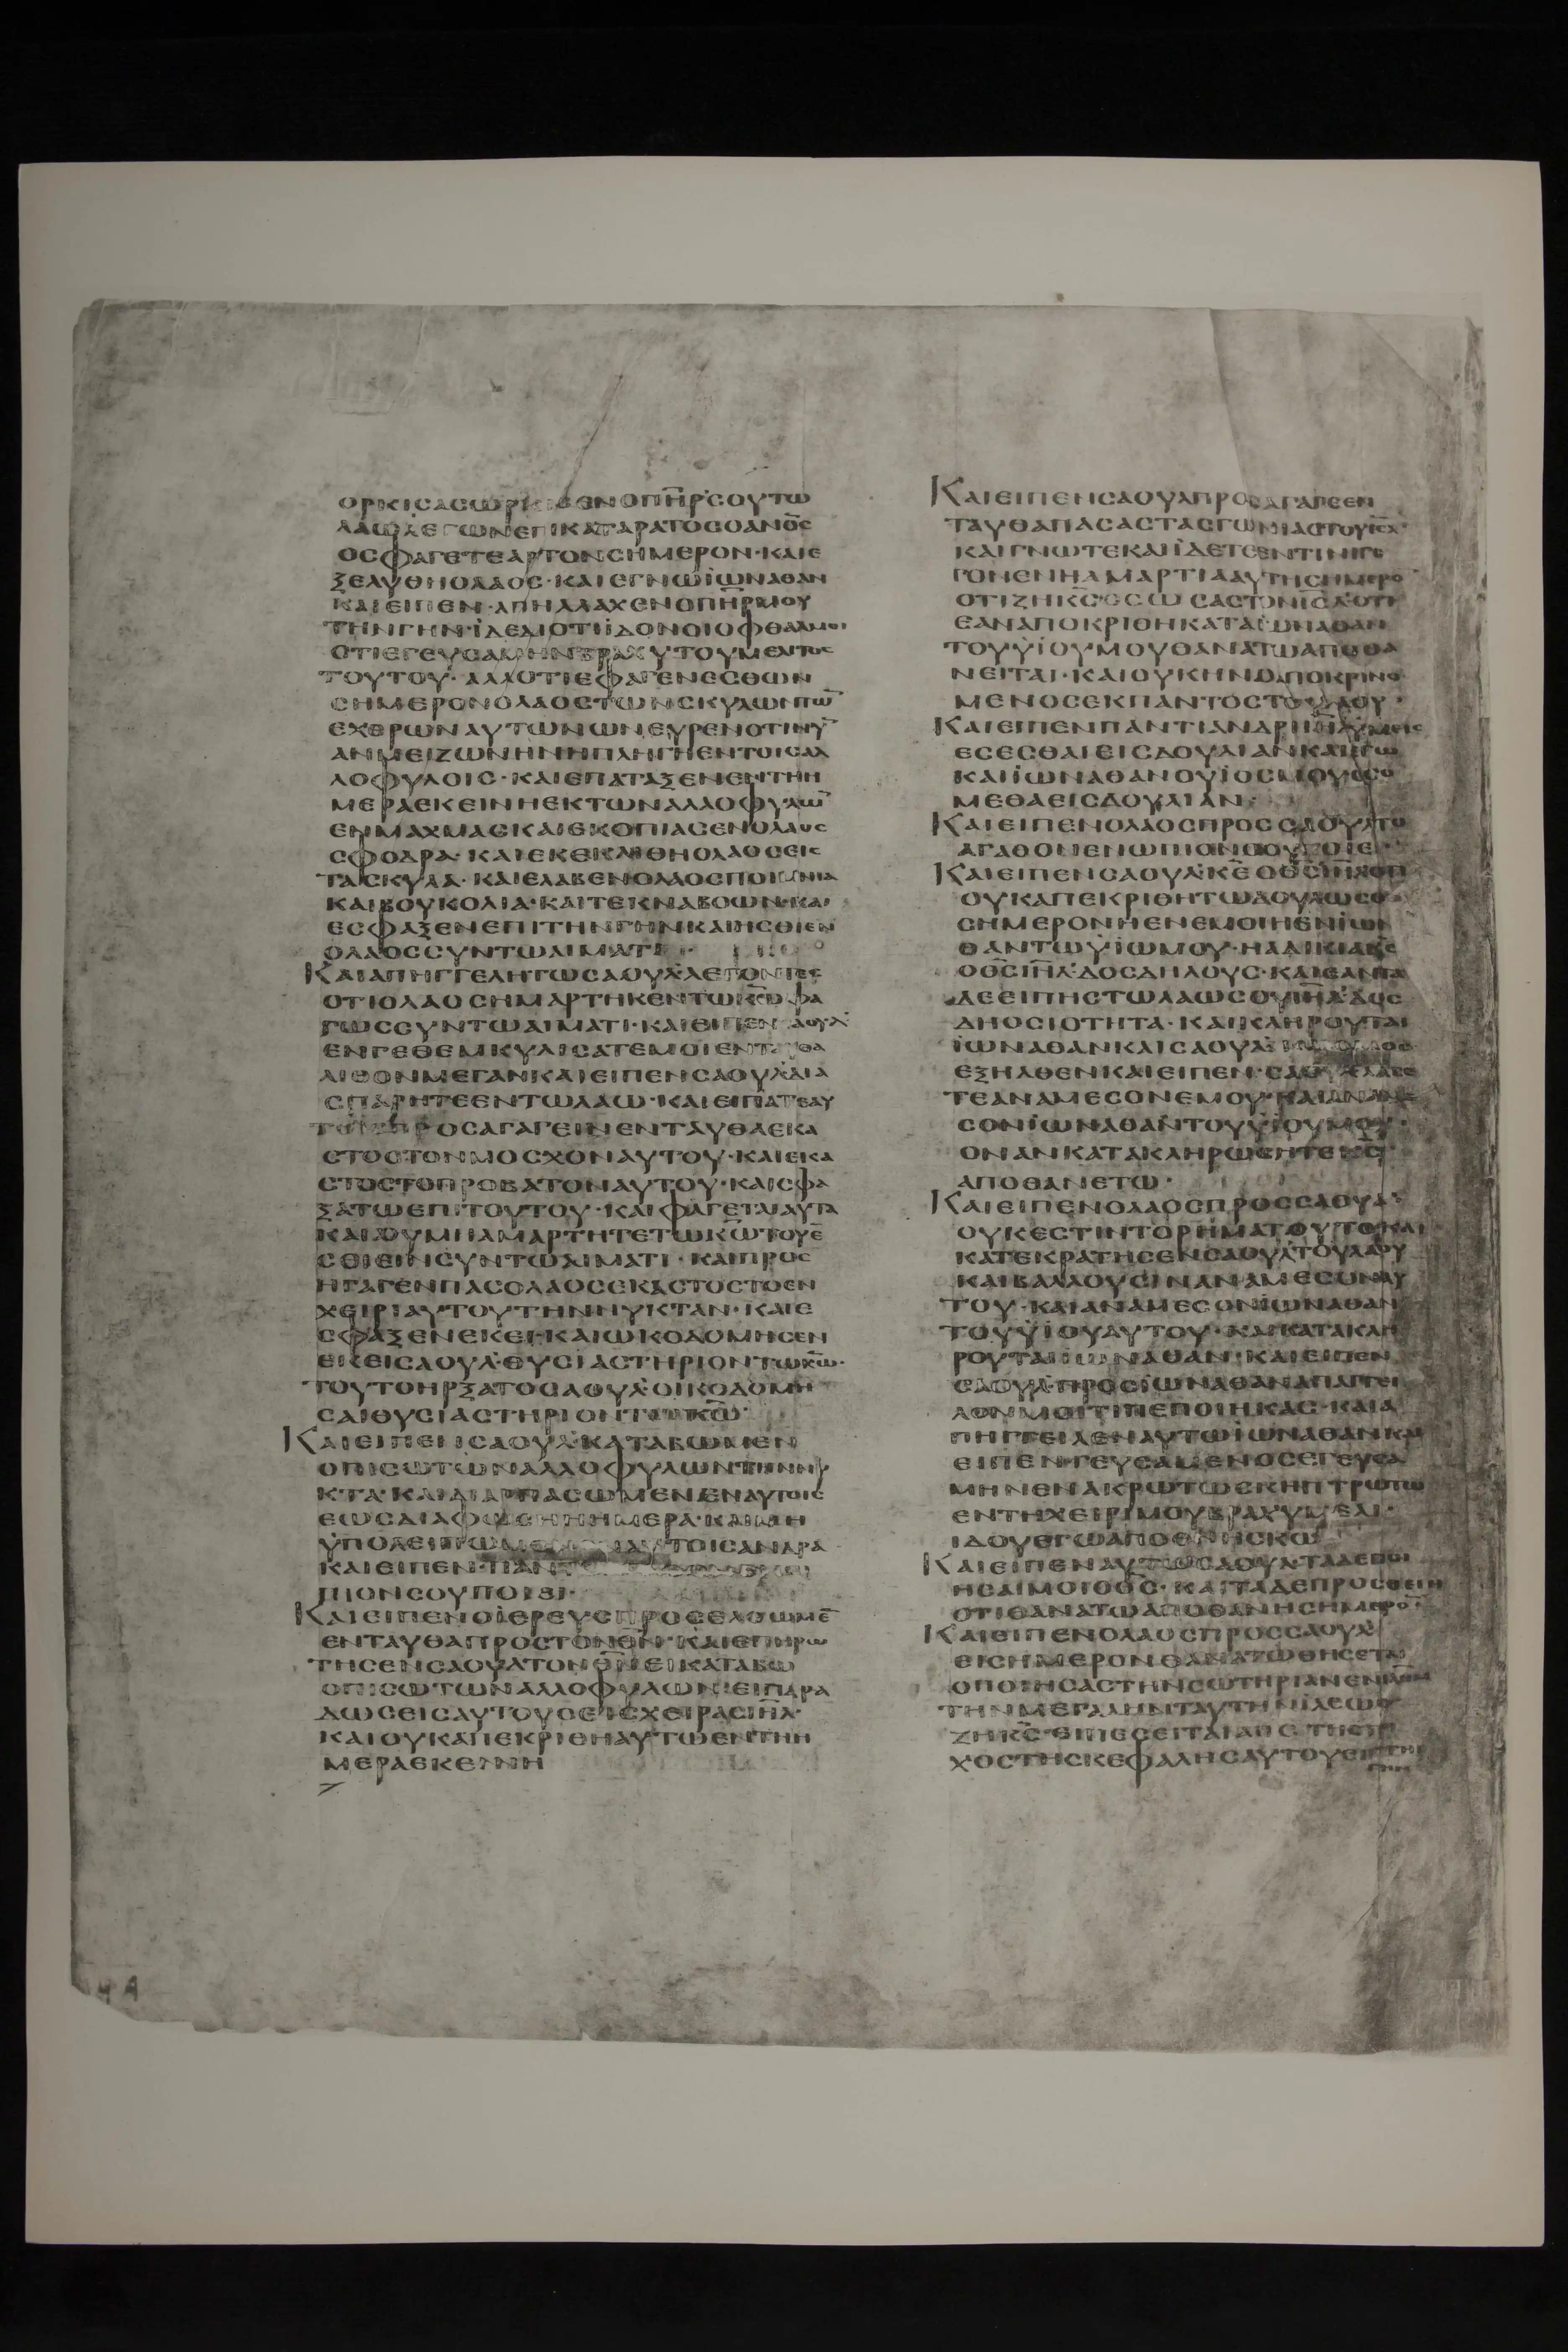 ΟΡΚΙΣΑΣΩΡΚΙΣΕΝΟΠΗ̅Ρ̅ΣΟΥΤΩ
ΛΑΩΛΕΓΩΝΕΠΙΚΑΤΑΡΑΤΟΣΟΑΝΟ̅Σ̅
ΟΣΦΑΓΕΤΕΑΡΤΟΝΣΗΜΕΡΟΝ·ΚΑΙΕ
ΞΕΛΥΘΗΟΛΑΟΣ·ΚΑΙΕΓΝΩΪΩΝΑΘΑΝ
ΚΑΙΕΙΠΕΝ·ΑΠΗΛΛΑΧΕΝΟΠΗ̅Ρ̅ΜΟΥ
ΤΗΝΓΗΝ·ΪΔΕΔΙΟΤΙΪΔΟΝΟΙΟΦΘΑΛΜΟΙ
ΟΤΙΕΓΕΥΣΑΜΗΝΒΡΑΧΥΤΟΥΜΕΛΙΤΟΣ
ΤΟΥΤΟΥ·ΑΛΛΟΤΙΕΦΑΓΕΝΕΣΘΩΝ
ΣΗΜΕΡΟΝΟΛΑΟΣΤΩΝΣΚΥΛΩΝΤΩ̅
ΕΧΘΡΩΝΑΥΤΩΝΩΝΕΥΡΕΝΟΤΙΝΥ̅
ΑΝΜΕΙΖΩΝΗΝΗΠΛΗΓΗΕΝΤΟΙΣΑΛ
ΛΟΦΥΛΟΙΣ·ΚΑΙΕΠΑΤΑΞΕΝΕΝΤΗΗ
ΜΕΡΑΕΚΕΙΝΗΕΚΤΩΝΑΛΛΟΦΥΛΩ̅
ΕΝΜΑΧΜΑΣΚΑΙΕΚΟΠΙΑΣΕΝΟΛΑΟΣ
ΣΦΟΔΡΑ·ΚΑΙΕΚΕΚΛΙΘΗΟΛΑΟΣΕΙΣ
ΤΑΣΚΥΛΑ·ΚΑΙΕΛΑΒΕΝΟΛΑΟΣΠΟΙΜΝΙΑ
ΚΑΙΒΟΥΚΟΛΙΑ·ΚΑΙΤΕΚΝΑΒΟΩΝ·ΚΑΙ
ΕΣΦΑΞΕΝΕΠΙΤΗΝΓΗΝΚΑΙΗΣΘΙΕΝ
ΟΛΑΟΣΣΥΝΤΩΑΙΜΑΤΙ
ΚΑΙΑΠΗΓΓΕΛΗΤΩΣΑΟΥΛ·ΛΕΓΟΝΤΕΣ
ΟΤΙΟΛΑΟΣΗΜΑΡΤΗΚΕΝΤΩΚ̅Ω̅ΦΑ
ΓΩΣΣΥΝΤΩΑΙΜΑΤΙ·ΚΑΙΕΙΠΕΝΣΑΟΥΛ
ΕΝΓΕΘΕΜΚΥΛΙΣΑΤΕΜΟΙΕΝΤΑΥΘΑ
ΛΙΘΟΝΜΕΓΑΝΚΑΙΕΙΠΕΝΣΑΟΥΛΔΙΑ
ΣΠΑΡΗΤΕΕΝΤΩΛΑΩ·ΚΑΙΕΙΠΑΤΕΑΥ
ΤΟΙΣΠΡΟΣΑΓΑΓΕΙΝΕΝΤΑΥΘΑΕΚΑ
ΣΤΟΣΤΟΝΜΟΣΧΟΝΑΥΤΟΥ·ΚΑΙΕΚΑ
ΣΤΟΣΤΟΠΡΟΒΑΤΟΝΑΥΤΟΥ·ΚΑΙΣΦΑ
ΞΑΤΩΕΠΙΤΟΥΤΟΥ·ΚΑΙΦΑΓΕΤΑΙΑΥΤΑ
ΚΑΙΟΥΜΗΑΜΑΡΤΗΤΕΤΩΚ̅Ω̅ΤΟΥΕ̅
ΣΘΙΕΙΝΣΥΝΤΩΑΙΜΑΤΙ·ΚΑΙΠΡΟΣ
ΗΓΑΓΕΝΠΑΣΟΛΑΟΣΕΚΑΣΤΟΣΤΟΕΝ
ΧΕΙΡΙΑΥΤΟΥΤΗΝΝΥΚΤΑΝ·ΚΑΙΕ
ΣΦΑΞΕΝΕΚΕΙ·ΚΑΙΩΚΟΔΟΜΗΣΕΝ
ΕΚΕΙΣΑΟΥΛ·ΘΥΣΙΑΣΤΗΡΙΟΝΤΩΚ̅Ω̅·
ΤΟΥΤΟΗΡΞΑΤΟΣΑΟΥΛ·ΟΙΚΟΔΟΜΗ
ΣΑΙΘΥΣΙΑΣΤΗΡΙΟΝΤΩΚ̅Ω̅
ΚΑΙΕΙΠΕΝΣΑΟΥΛ·ΚΑΤΑΒΩΜΕΝ
ΟΠΙΣΩΤΩΝΑΛΛΟΦΥΛΩΝΤΗΝΝΥ
ΚΤΑ·ΚΑΙΔΙΑΡΠΑΣΩΜΕΝΕΝΑΥΤΟΙΣ
ΕΩΣΔΙΑΦΩΣΗΗΗΜΕΡΑ·ΚΑΙΜΗ
ΫΠΟΛΕΙΠΩΜΕΝ ΑΥΤΟΙΣΑΝΔΡΑ
ΚΑΙΕΙΠΕΝ·ΠΑΝ
ΠΙΟΝΣΟΥΠΟΙΕΙ·
ΚΑΙΕΙΠΕΝΟΪΕΡΕΥΣΠΡΟΣΕΛΘΩΜΕ̅
ΕΝΤΑΥΘΑΠΡΟΣΤΟΝΘ̅Ν̅·ΚΑΙΕΠΗΡΩ
ΤΗΣΕΝΣΑΟΥΛΤΟΝΘ̅Ν̅ΕΙΚΑΤΑΒΩ
ΟΠΙΣΩΤΩΝΑΛΛΟΦΥΛΩΝ·ΕΙΠΑΡΑ
ΔΩΣΕΙΣΑΥΤΟΥΣΕΙΣΧΕΙΡΑΣΙ̅Η̅Λ̅·
ΚΑΙΟΥΚΑΠΕΚΡΙΘΗΑΥΤΩΕΝΤΗΗ
ΜΕΡΑΕΚΕΙΝΗ
ΚΑΙΕΙΠΕΝΣΑΟΥΛΠΡΟΣΑΓΑΓΕΕΝ
ΤΑΥΘΑΠΑΣΑΣΤΑΣΓΩΝΙΑΣΤΟΥΙ̅Η̅Λ̅·
ΚΑΙΓΝΩΤΕΚΑΙΪΔΕΤΕΕΝΤΙΝΙΓΕ
ΓΟΝΕΝΗΑΜΑΡΤΙΑΑΥΤΗΣΗΜΕΡΟ̅
ΟΤΙΖΗΚ̅Σ̅ΟΣΩΣΑΣΤΟΝΙ̅Η̅Λ̅·ΟΤΙ
ΕΑΝΑΠΟΚΡΙΘΗΚΑΤΑΪΩΝΑΘΑΝ
ΤΟΥΫΙΟΥΜΟΥΘΑΝΑΤΩΑΠΟΘΑ
ΝΕΙΤΑΙ·ΚΑΙΟΥΚΗΝΟΑΠΟΚΡΙΝΟ
ΜΕΝΟΣΕΚΠΑΝΤΟΣΤΟΥΛΑΟΥ·
ΚΑΙΕΙΠΕΝΠΑΝΤΙΑΝΔΡΙΙ̅Η̅Λ̅ΫΜΕΙΣ
ΕΣΕΣΘΑΙΕΙΣΔΟΥΛΙΑΝΚΑΙΕΓΩ
ΚΑΙΪΩΝΑΘΑΝΟΥΙΟΣΜΟΥΕΣΟ
ΜΕΘΑΕΙΣΔΟΥΛΙΑΝ·
ΚΑΙΕΙΠΕΝΟΛΑΟΣΠΡΟΣΣΑΟΥΛΤΟ
ΑΓΑΘΟΝΕΝΩΠΙΟΝΣΟΥΠΟΙΕΙ·
ΚΑΙΕΙΠΕΝΣΑΟΥΛ·Κ̅Ε̅ΟΘ̅Σ̅Ι̅Η̅Λ̅ΟΤΙ
ΟΥΚΑΠΕΚΡΙΘΗΤΩΔΟΥΛΩΣΟΥ
ΣΗΜΕΡΟΝΗΕΝΕΜΟΙΗΕΝΪΩΝ
ΘΑΝΤΩΫΙΩΜΟΥ·ΗΑΔΙΚΙΑΚ̅Ε̅
ΟΘ̅Σ̅Ι̅Η̅Λ̅·ΔΟΣΔΗΛΟΥΣ·ΚΑΙΕΑΝΤΑ
ΔΕΕΙΠΗΣΤΩΛΑΩΣΟΥΙ̅Η̅Λ̅·ΔΟΣ
ΔΗΟΣΙΟΤΗΤΑ·ΚΑΙΚΛΗΡΟΥΤΑΙ
ΪΩΝΑΘΑΝΚΑΙΣΑΟΥΛ·
ΕΞΗΛΘΕΝΚΑΙΕΙΠΕΝ·ΣΑΟΥΛΒΑΛΕ
ΤΕΑΝΑΜΕΣΟΝΕΜΟΥ·ΚΑΙΑΝΑΜΕ
ΣΟΝΪΩΝΑΘΑΝΤΟΥΫΪΟΥΜΟΥ·
ΟΝΑΝΚΑΤΑΚΛΗΡΩΣΗΤΕΚ̅Σ̅
ΑΠΟΘΑΝΕΤΩ·
ΚΑΙΕΙΠΕΝΟΛΑΟΣΠΡΟΣΣΑΟΥΛ·
ΟΥΚΕΣΤΙΝΤΟΡΗΜΑΤΟΥΤΟΚΑΙ
ΚΑΤΕΚΡΑΤΗΣΕΝΣΑΟΥΛΤΟΥΛΑΟΥ
ΚΑΙΒΑΛΛΟΥΣΙΝΑΝΑΜΕΣΟΝΑΥ
ΤΟΥ·ΚΑΙΑΝΑΜΕΣΟΝΪΩΝΑΘΑΝ
ΤΟΥΫΙΟΥΑΥΤΟΥ·ΚΑΙΚΑΤΑΚΛΗ
ΡΟΥΤΑΙΪΩΝΑΘΑΝ·ΚΑΙΕΙΠΕΝ
ΣΑΟΥΛ·ΠΡΟΣΪΩΝΑΘΑΝΑΠΑΓΓΕΙ
ΛΟΝΜΟΙΤΙΠΕΠΟΙΗΚΑΣ·ΚΑΙΑ
ΠΗΓΓΕΙΛΕΝΑΥΤΩΪΩΝΑΘΑΝΚΑΙ
ΕΙΠΕΝ·ΓΕΥΣΑΜΕΝΟΣΕΓΕΥΣΑ
ΜΗΝΕΝΑΚΡΩΤΩΣΚΗΠΤΡΩΤΩ
ΕΝΤΗΧΕΙΡΙΜΟΥΒΡΑΧΥΜΕΛΙ·
ΙΔΟΥΕΓΩΑΠΟΘΝΗΣΚΩ
ΚΑΙΕΙΠΕΝΑΥΤΩΣΑΟΥΛ·ΤΑΔΕΠΟΙ
ΗΣΑΙΜΟΙΟΘ̅Σ̅·ΚΑΙΤΑΔΕΠΡΟΣΘΕΙΗ
ΟΤΙΘΑΝΑΤΩΑΠΟΘΑΝΗΣΗΜΕΡΟ̅·
ΚΑΙΕΙΠΕΝΟΛΑΟΣΠΡΟΣΣΑΟΥΛ
ΕΙΣΗΜΕΡΟΝΘΑΝΑΤΩΘΗΣΕΤΑΙ
ΟΠΟΙΗΣΑΣΤΗΝΣΩΤΗΡΙΑΝΕΝΙ̅Η̅Λ̅
ΤΗΝΜΕΓΑΛΗΝΤΑΥΤΗΝΪΛΕΩΣ
ΖΗΚ̅Σ̅·ΕΙΠΕΣΕΙΤΑΙΑΠΟΤΗΣΤΡΙ
ΧΟΣΤΗΣΚΕΦΑΛΗΣΑΥΤΟΥΕΠΙΤΗΝ
ΓΗΝ